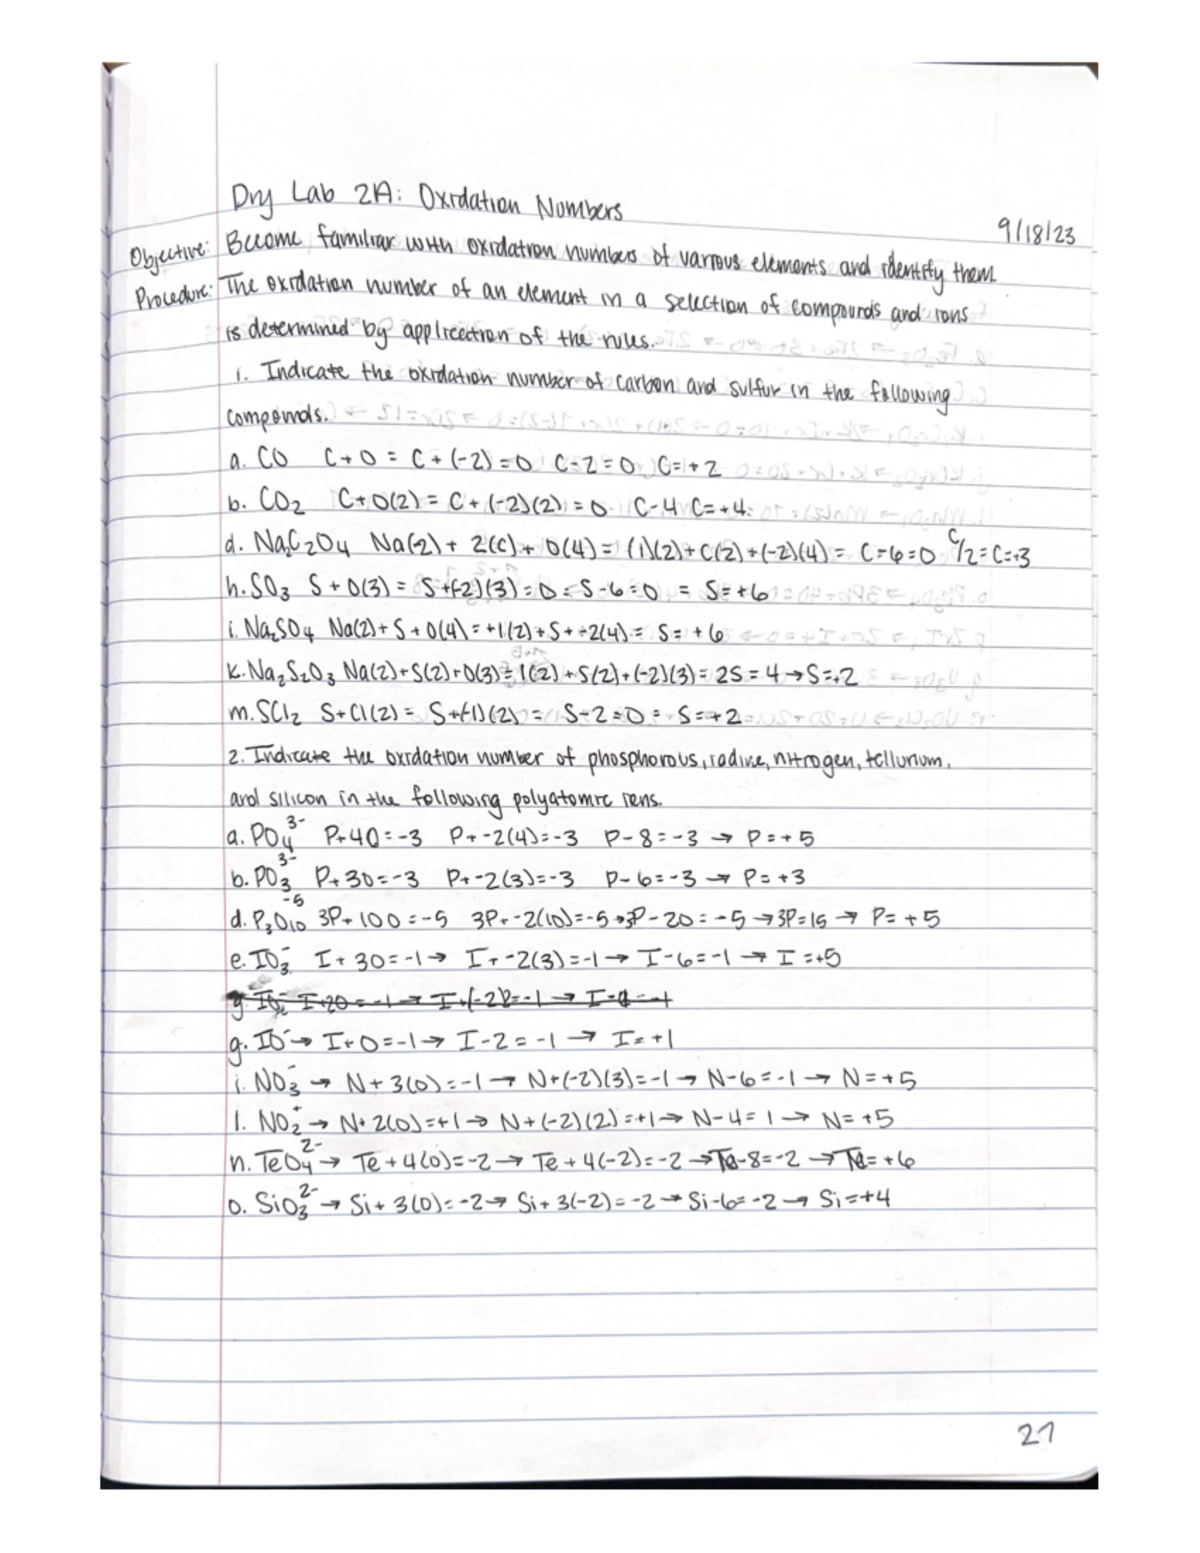 Dry Lab 2A: Oxidation Numbers
9/18/23
Objective: Become familiar with oxidation numbers of various elements and identify them.
Procedure: The oxidation number of an element in a selection of compounds and ions
is determined by application of the rules.
1. Indicate the oxidation number of carbon and sulfur in the following
compounds.
a. CO C+O = C+(-2)=0 C-2=0 C=+2
b. CO₂ C+O(2) = C+(-2)(2)=0 C-4 C=+4
d. Na₂C₂O₄ Na(2)+2(C)+O(4)=(1)(2)+C(2)+(-2)(4)= C-6=0 C/2=C=+3
h. SO₃ S+O(3) = S+(-2)(3)=0=S-6=0 = S=+6
i. Na₂SO₄ Na(2)+S+O(4)=+1(2)+S+-2(4)= S=+6
k. Na₂S₂O₃ Na(2)+S(2)+O(3)=1(2)+S(2)+(-2)(3)=2S=4→S=+2
m. SCl₂ S+Cl(2)= S+(-1)(2)= S-2=0= S=+2
2. Indicate the oxidation number of phosphorous, iodine, nitrogen, tellurium,
and silicon in the following polyatomic ions.
a. PO₄³⁻ P+4O=-3 P+-2(4)=-3 P-8=-3 → P=+5
b. PO₃³⁻ P+3O=-3 P+-2(3)=-3 P-6=-3 → P=+3
d. P₃O₁₀⁻⁵ 3P+10O=-5 3P+-2(10)=-5→3P-20=-5→3P=15→ P=+5
e. IO₃⁻ I+3O=-1→ I+-2(3)=-1→ I-6=-1→ I=+5
g. IO⁻→ I+O=-1→ I-2=-1 → I=+1
i. NO₃⁻ → N+3(O)=-1→ N+(-2)(3)=-1→ N-6=-1→ N=+5
l. NO₂⁺→ N+2(O)=+1→ N+(-2)(2)=+1→ N-4=1→ N=+5
n. TeO₄²⁻→ Te+4(O)=-2→ Te+4(-2)=-2→Te-8=-2 →Te=+6
o. SiO₃²⁻→ Si+3(O)=-2→ Si+3(-2)=-2→ Si-6=-2→ Si=+4
27